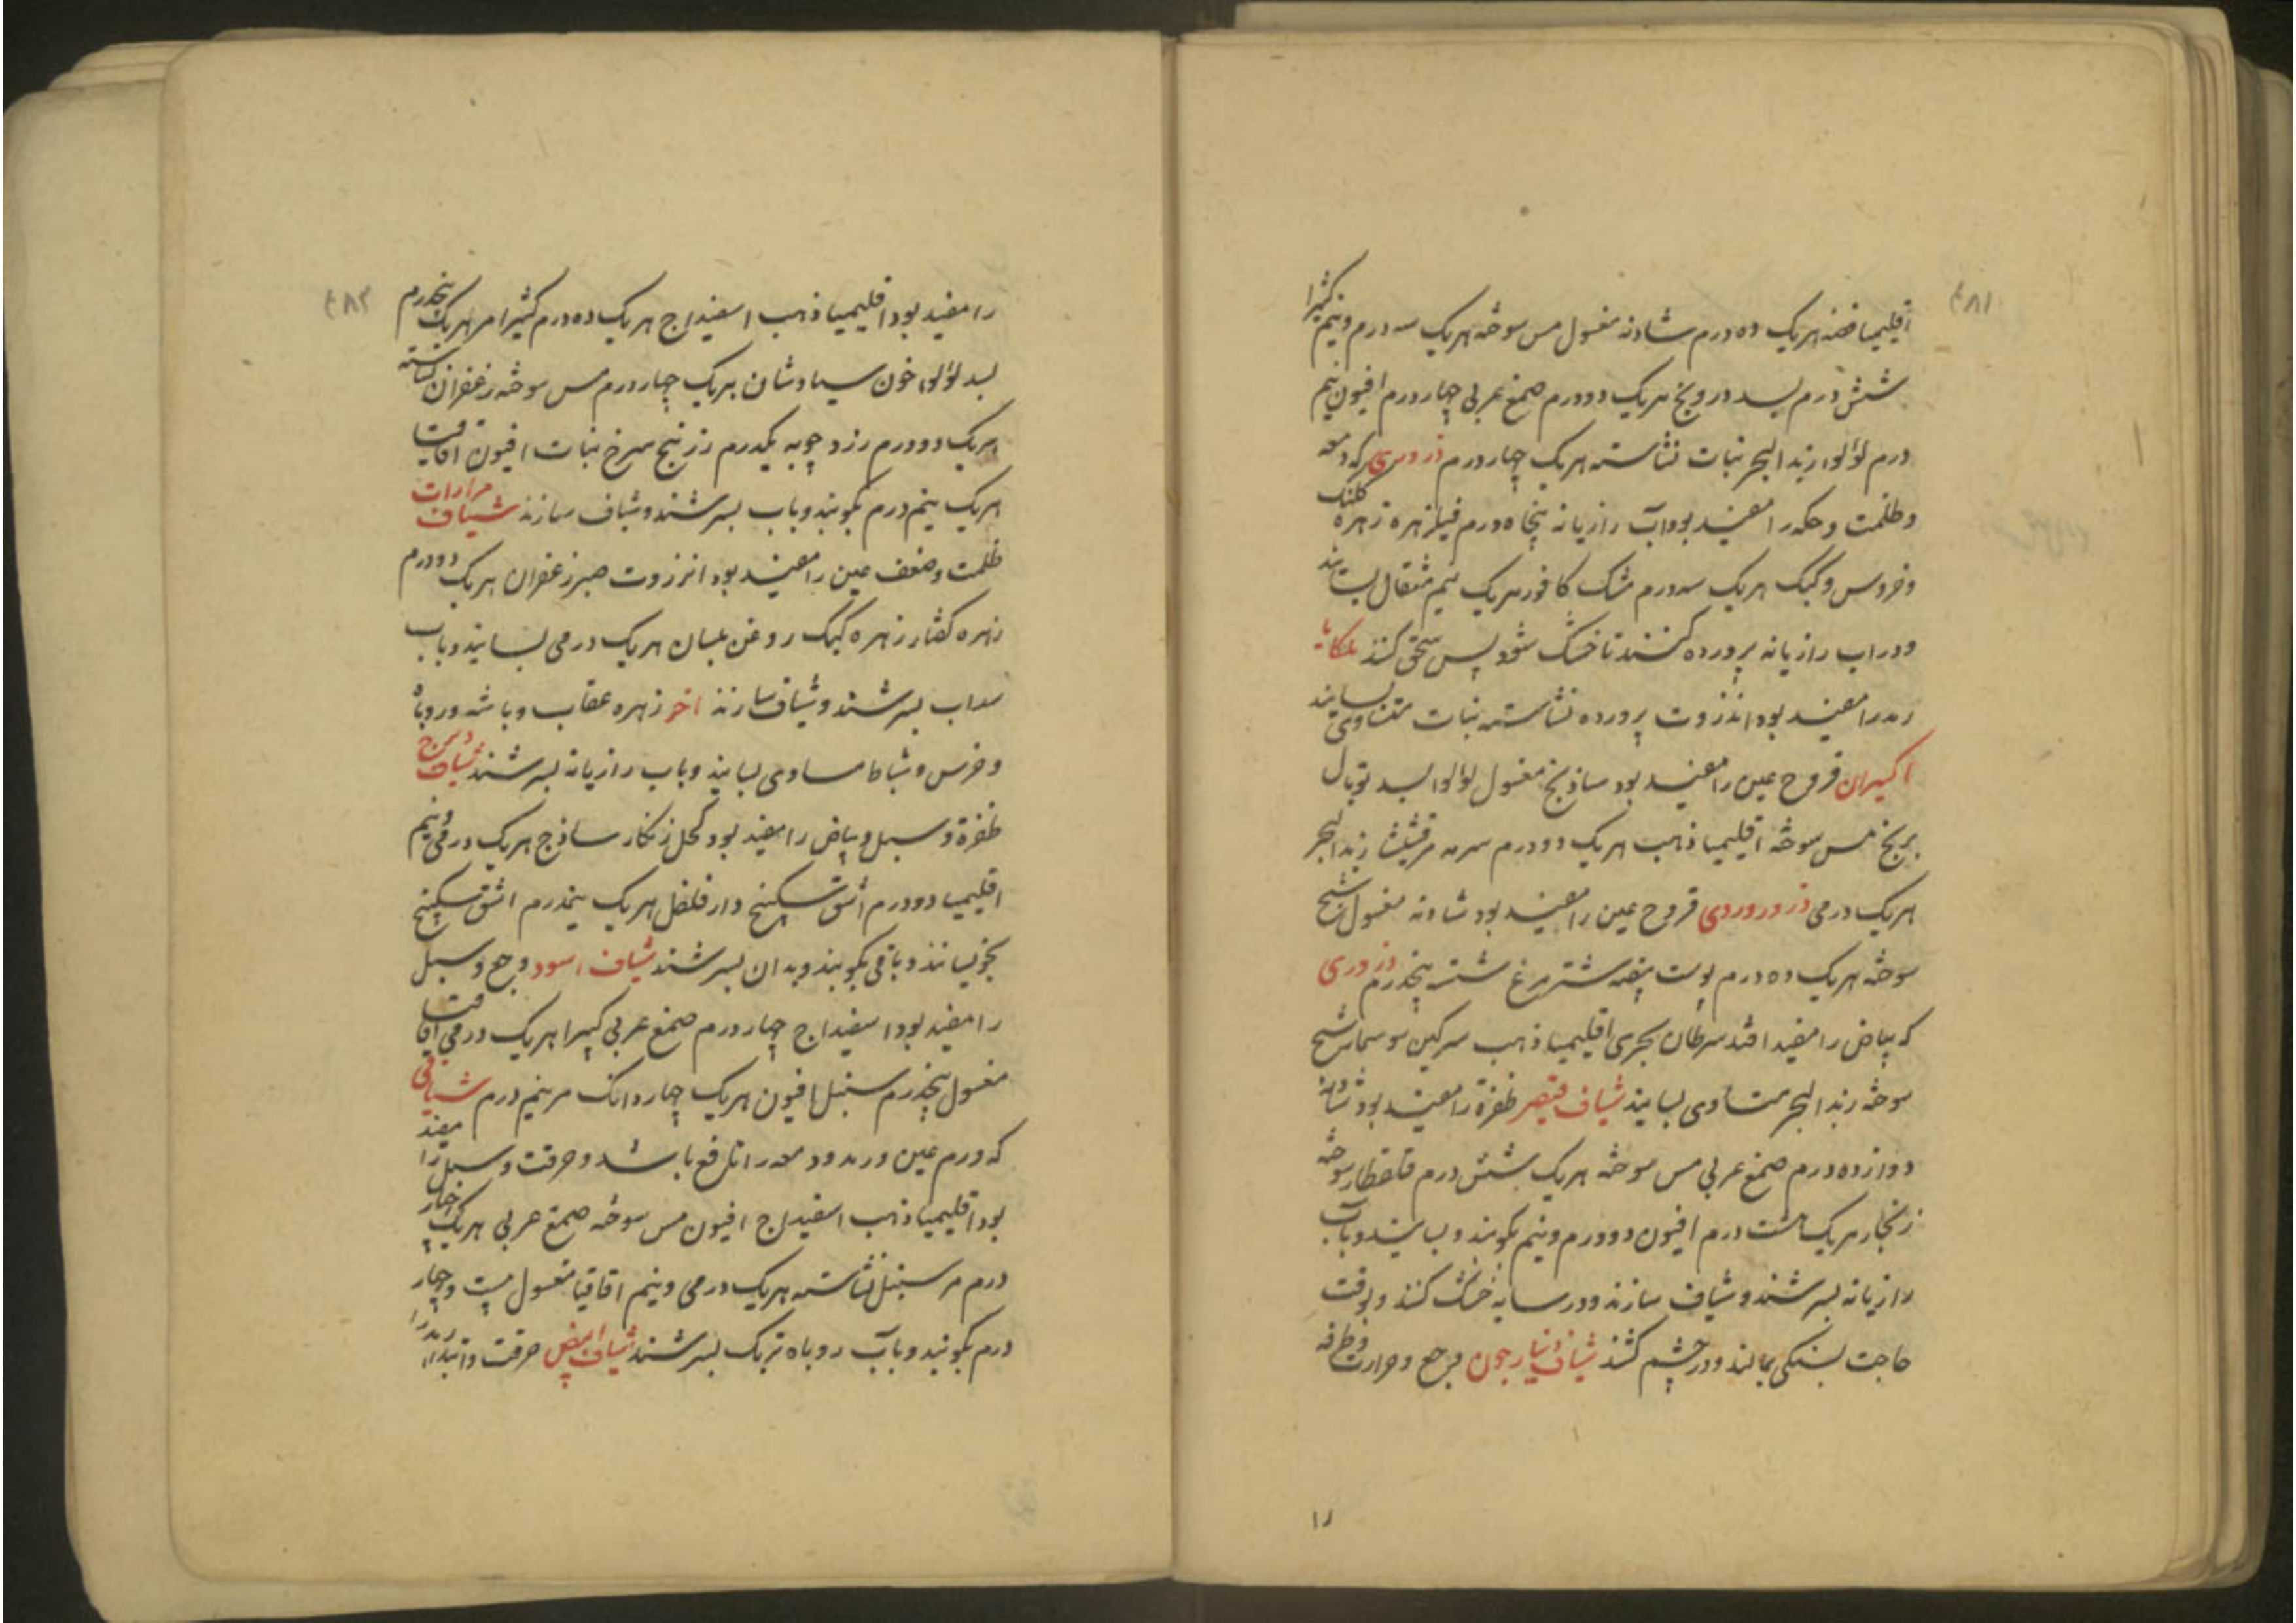 ۴۸۱
اقلیمیا فضه هریک ده درم شادنه مغسول مس سوخته هریک سه درم و نیم کثیرا
شش درم بسد درونج هریک دو درم صمغ عربی چهار درم افیون نیم
درم لؤلؤ زبد البحر نبات نشاسته هریک چهار درم ذروری که دمعه
و ظلمت و حکه را مفید بود آب رازیانه پنجاه درم فیلزهره زهره کلنک
و خروس و کبک هریک سه درم مشک کافور هریک نیم مثقال بسایند
و در اب رازیانه پرورده کنند تا خشک شود پس سحق کنند ملکایا
رمد را مفید بود انزروت پرورده نشاسته نبات متساوی بسایند
اکسیران قروح عین را مفید بود ساذنج مغسول لؤلؤ بسد توبال
مس سوخته اقلیمیا ذهب هریک دو درم سرمه مرقشیشا زبد البحر
هریک درمی ذرور وردی قروح عین را مفید بود شادنه مغسول شیح
سوخته هریک ده درم پوست بیضه شترمرغ شسته پنجدرم ذروری
که بیاض را مفید افتد سرطان بحری اقلیمیا ذهب سرکین سوسمار شیح
سوخته زبد البحر متساوی بسایند شیاف قیصر ظفرة را مفید بود شادنه
دوازده درم صمغ عربی مس سوخته هریک شش درم قلقطار سوخته
زنجار هریک هشت درم افیون دو درم و نیم بکوبند و بسایند و باب
رازیانه بسرشند و شیاف سازند و در سایه خشک کنند و بوقت
حاجت بسنکی بمالند و در چشم کشند شیاف دینارجون وجع و حرارت و طرفه
۴۸۲
را مفید بود اقلیمیا ذهب اسفیداج هریک ده درم کثیرا مر هریک پنجدرم
بسد لؤلؤ خون سیاوشان هریک چهار درم مس سوخته زعفران نشاسته
هریک دو درم زرد چوبه یکدرم زرنیخ سرخ نبات افیون اقاقیا
هریک نیم درم بکوبند و باب بسرشند و شیاف سازند شیاف مرارات
ظلمت و ضعف عین را مفید بود انزروت صبر زعفران هریک دو درم
زهره کفتار زهره کبک روغن بلسان هریک درمی بسایند و باب
سداب بسرشند و شیاف سازند اخر زهره عقاب و باشه و روباه
و خرس و شباط مساوی بسایند و باب رازیانه بسرشند شیاف دیزج
ظفرة و سبل و بیاض را مفید بود کحل زنکار ساذج هریک درمی و نیم
اقلیمیا دو درم اشق سکبینج دارفلفل هریک پنجدرم اشق سکبینج
بخویسانند و باقی بکوبند و بدان بسرشند شیاف اسود وجع و سبل
را مفید بود اسفیداج چهار درم صمغ عربی کتیرا هریک درمی اقاقیا
مغسول پنجدرم سنبل افیون هریک چهار دانک مر نیم درم شیافی
که ورم عین و رمد و دمعه را نافع باشد و حرقت و سبل را مفید
بود اقلیمیا ذهب اسفیداج افیون مس سوخته صمغ عربی هریک چهار
درم مر سنبل نشاسته هریک درمی و نیم اقاقیا مغسول بیست و چهار
درم بکوبند و باب روباه تربک بسرشند شیاف ابیض حرقت و ابتداء رمد را